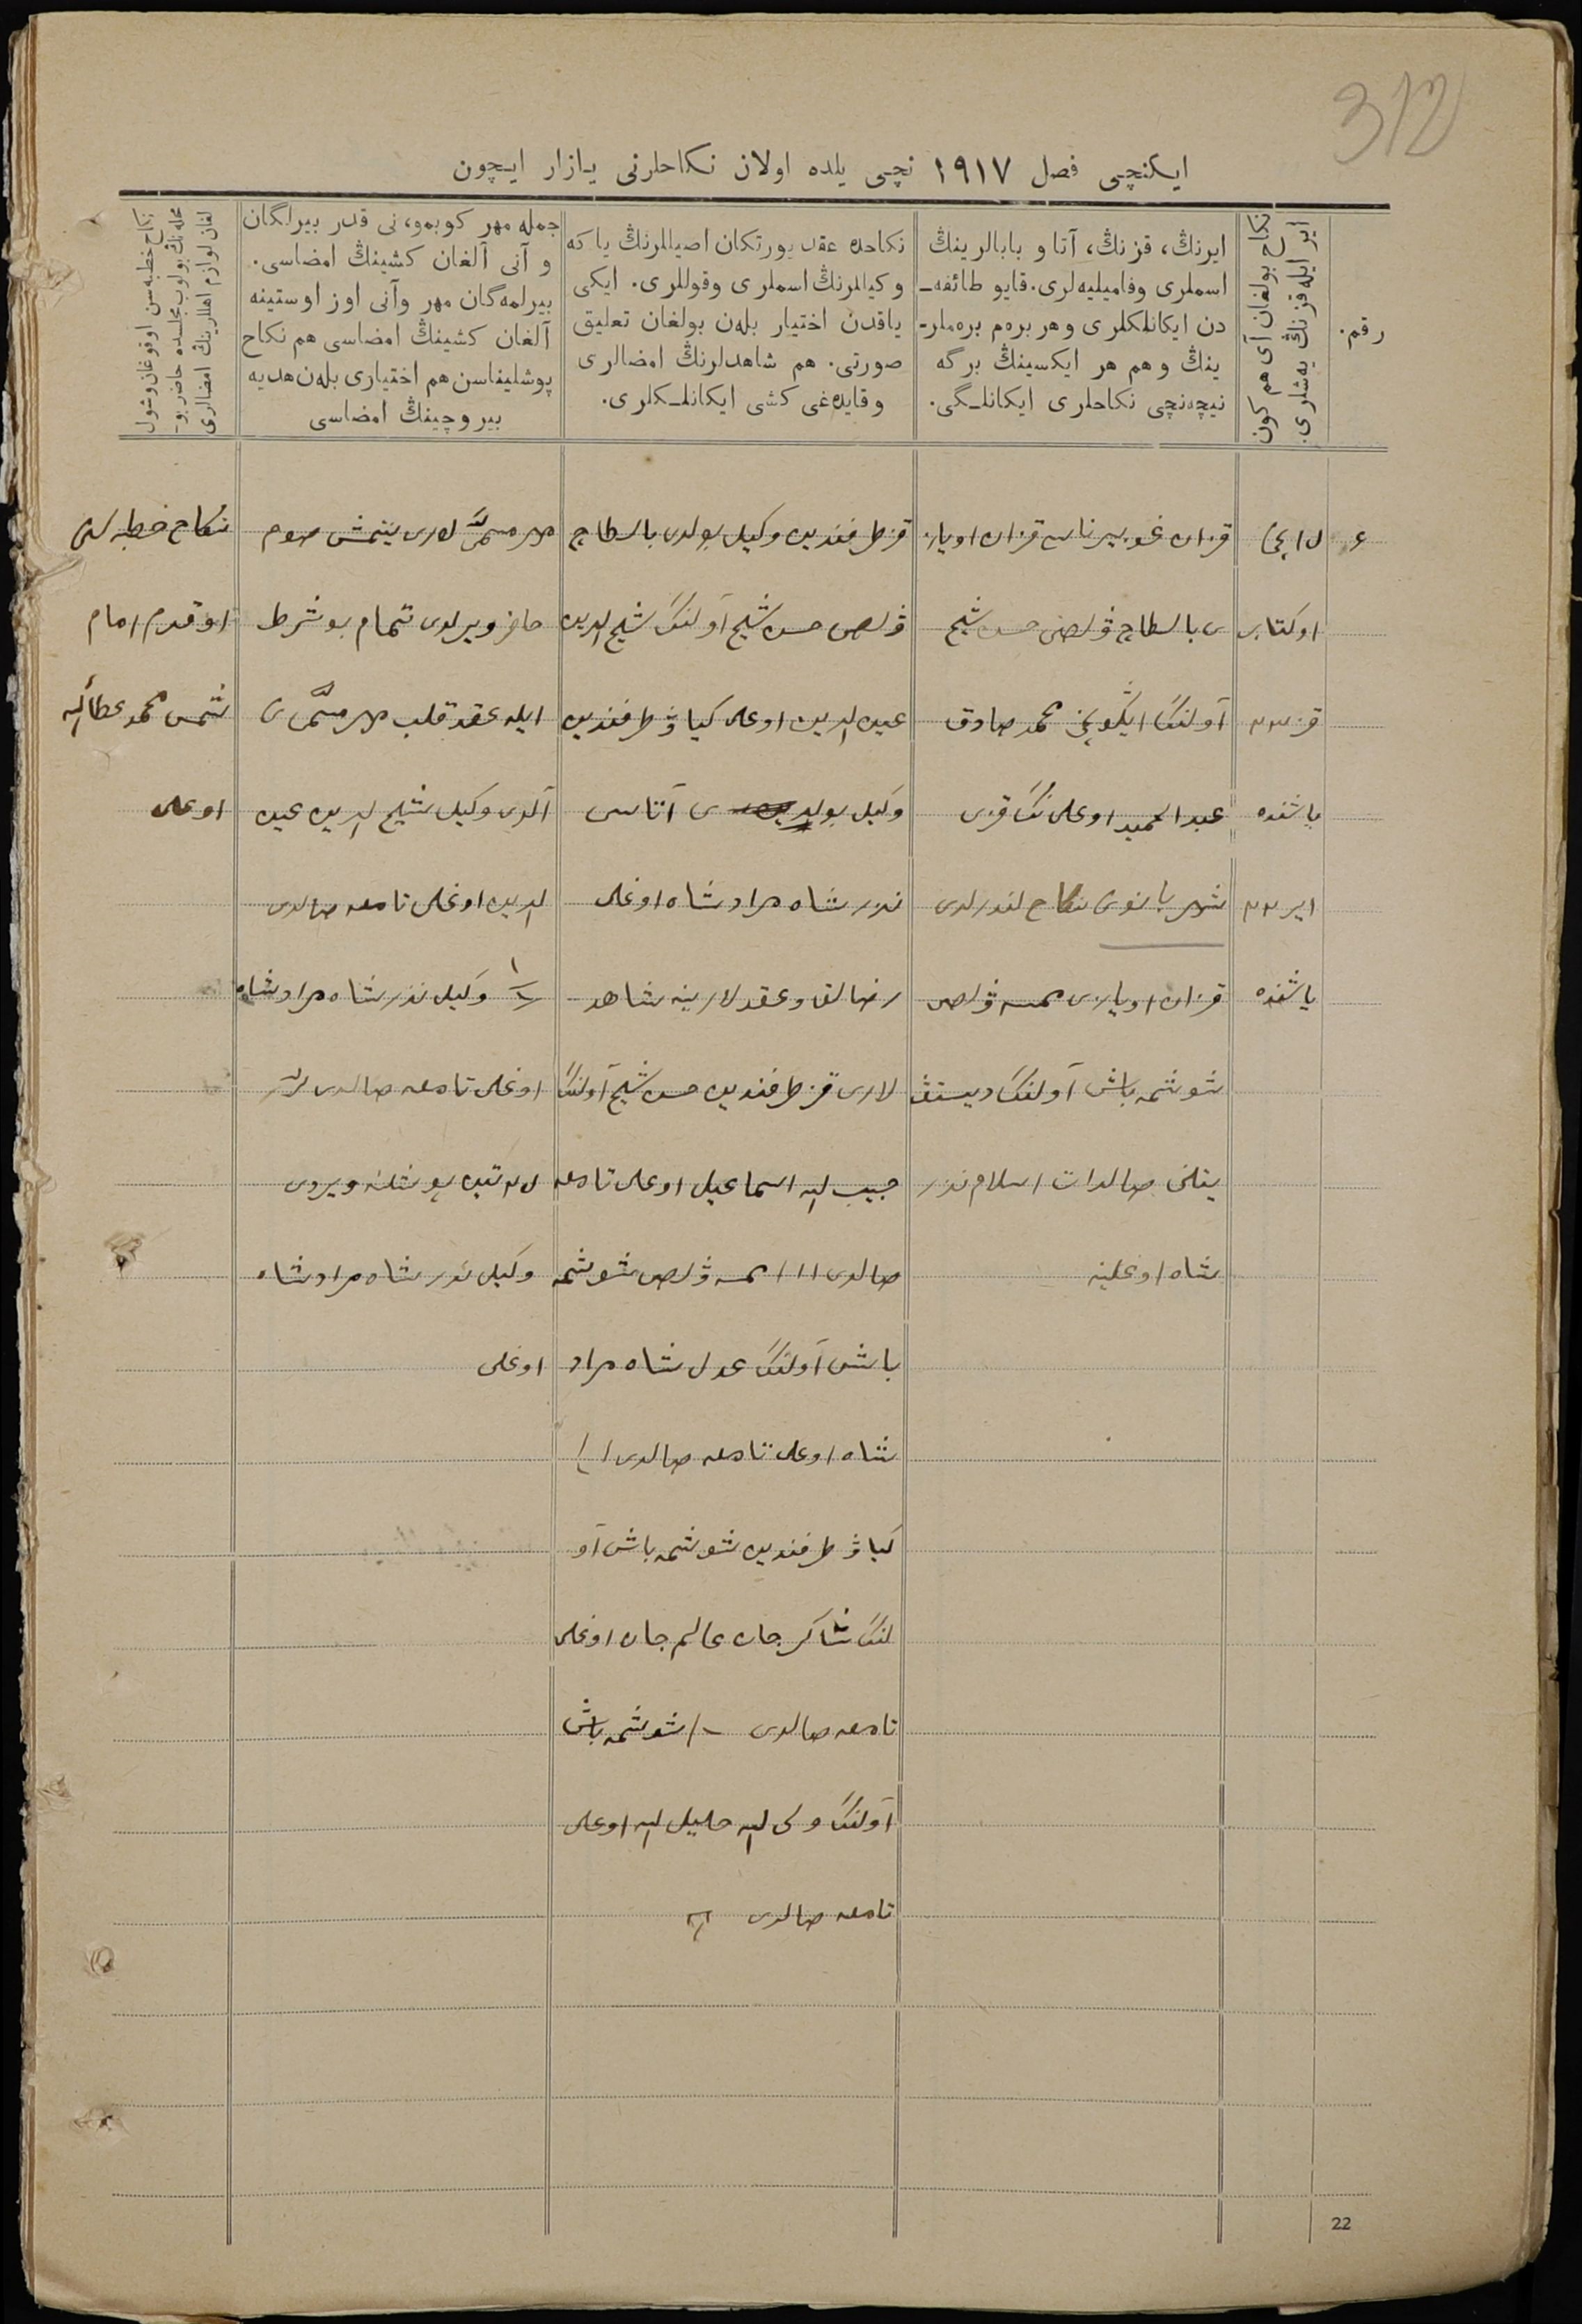 312
ایكنچی فصل ١٩١٧ نچی یلده اولان نكاحلرنی یازار ایچون
رقم.
نكاح بولغان آی هم كون
ایر ایله قزنڭ یه‌شلری.
ایرنڭ، قزنڭ، آتا و بابالرینڭ
اسملری وفامیلیه‌لری. قایو طائفه‌ـ
دن ایكانلكلری وهر بره‌م بره‌ملر‌ـ
ینڭ وهم هر ایكسینڭ برگه
نیچه‌نچی نكاحلری ایكانلـگی.
نكاحده عقد یورتكان اصیللرنڭ یاكه
وكیللرنڭ اسملری وقوللری. ایكی
یاقدن اختیار بله‌ن بولغان تعلیق
صورتی. هم شاهدلرنڭ امضالری
وقایده‌غی كشی ایكانلـكلری.
جمله مهر كوبمو، نی قدر بیرلگان
و آنی آلغان كشینڭ امضاسی.
بیرلمه‌گان مهر وآنی اوز اوستینه
آلغان كشینڭ امضاسی هم نكاح
پوشلیناسن هم اختیاری بله‌ن هدیه
بیروچینڭ امضاسی
نكاح خطبه‌سن اوقوغان وشول
محله‌نڭ بولوب مجلسده حاضر بو‌ـ
لغان لوازم اهللرینڭ امضالری
اوكتابر
قز ٢٣
یاشنده
ایر ٢٢
یاشنده
قزان غوبیرناسی قزان اویاز
ی بالطاچ ڤلصی حسن شیخ
آولنڭ محمد صادق
عبدالحمید اوغلی نڭ قزی
شهربانونی نكاح لندرلدی
قزان اویازی ڤلصی
شوشمه باش آولنڭ
صالدات اسلام نذر
شاه اوغلینه
قز طرفندین وكیل بولدی بالطاچ
ڤلصی حسن شیخ آولنڭ شیخ الدین
عین الدین اوغلی كیاو طرفندین
وكیل بولدی آتاسی
نذرشاه مرادشاه اوغلی
رضالق وعقدلارینه شاهد
لاری قز طرفندین حسن شیخ آولنڭ
حبیب الله اسماعیل اوغلی تامغه
صالدی ااا ڤلصی شوشمه
باش آولنڭ عدل شاه مراد
شاه اوغلی تامغه صالدی
كیاو طرفندین شوشمه باش آو
لنڭ شاكرجان عالم جان اوغلی
تامغه صالدی شوشمه باش
آولنڭ ولی الله خلیل الله اوغلی
تامغه صالدی
مهر مسمّی لاری یتمش صوم
حاضر ویرلدی تمام بو شرط
ایله عقد قلب مهر مسمّی نی
آلدی وكیل شیخ الدین عین
الدین اوغلی تامغه صالدی
وكیل نذرشاه مرادشاه
اوغلی تامغه صالدی
ویردی
وكیل نذرشاه مرادشاه
اوغلی
نكاح خطبه سن
اوقدم امام
شمس محمد عطاء الله
اوغلی
22